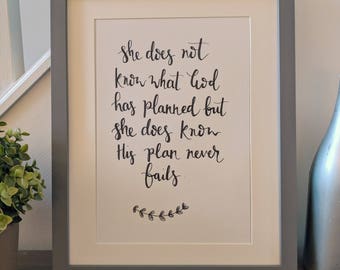 she does not
know what God
has planned but
she does know
His plan never
fails